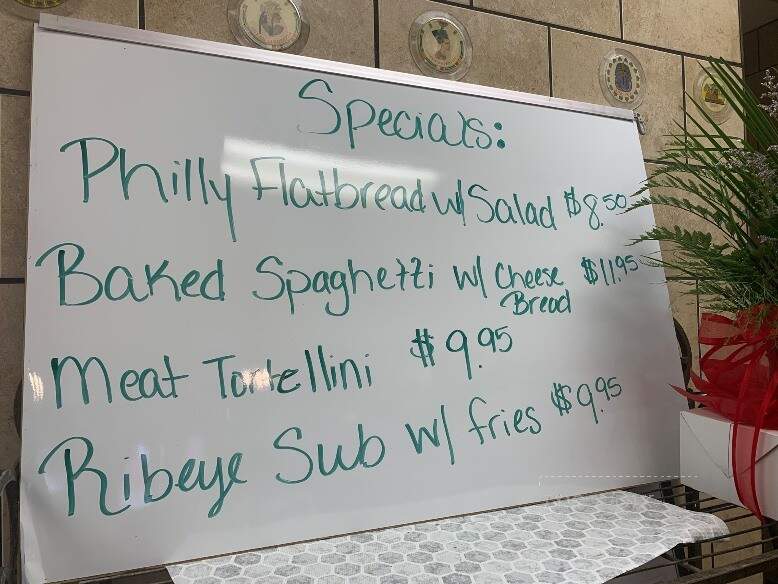 Specials:
Philly Flatbread w/ Salad $8.50
Baked Spaghetti w/ Cheese $11.95
Bread
Meat Tortellini $9.95
Ribeye Sub w/ fries $9.95